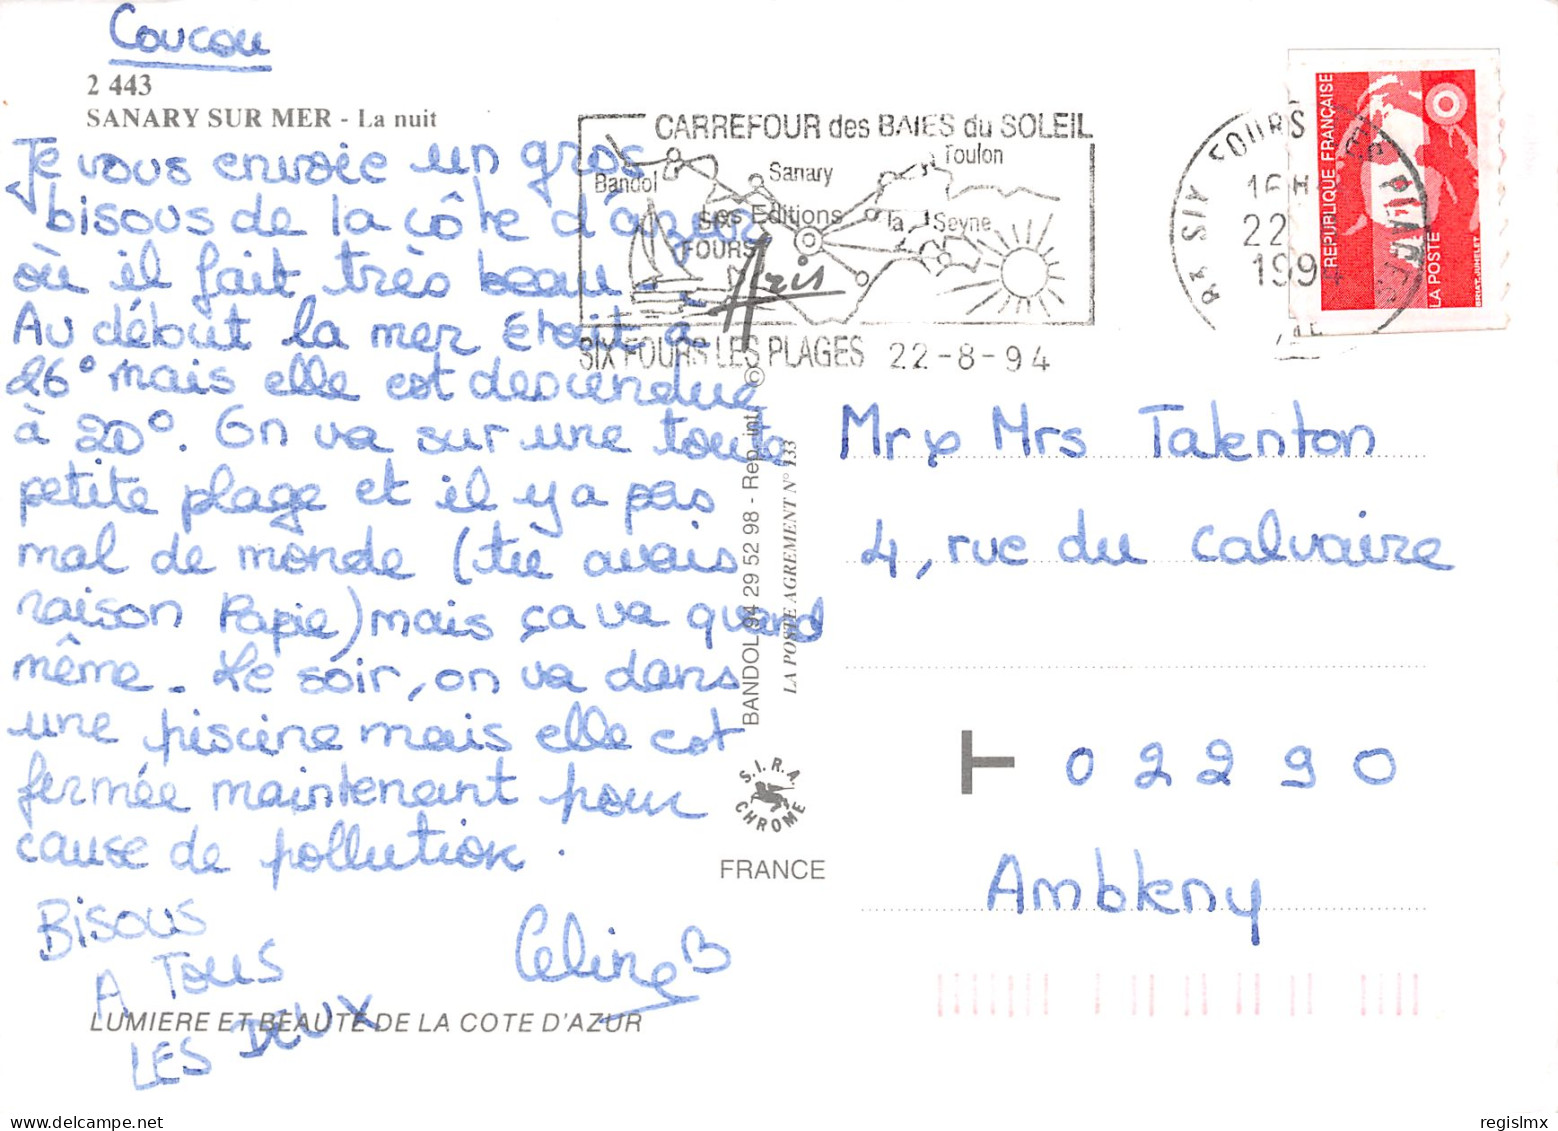 Coucou
2 443
SANARY SUR MER - La nuit
Je vous envoie un gros
bisous de la côte d'azur
où il fait très beau.
Au début la mer étoit à
26° mais elle est descendue
à 20°. On va sur une toute
petite plage et il y a pas
mal de monde (tu avais
raison Papie) mais ça va quand
même. Le soir, on va dans
une piscine mais elle est
fermée maintenant pour
cause de pollution.
BISOUS
A TOUS
LES DEUX
Celine B
LUMIERE ET BEAUTÉ DE LA COTE D'AZUR
CARREFOUR des BAIES du SOLEIL
Bandol
Sanary
Toulon
la Seyne
Les Editions
FOURS
Aris
SIX FOURS LES PLAGES 22-8-94
SIX FOURS LES PLAGES
16H
22
199
REPUBLIQUE FRANÇAISE
LA POSTE
BRIAT-JUMELET
© BANDOL 94 29 52 98 - Rep. int.
LA POSTE AGREMENT N° 133
S.I.R.A.
CHROME
FRANCE
Mr & Mrs Talenton
4, rue du Calvaire
02290
Ambleny
regislmx